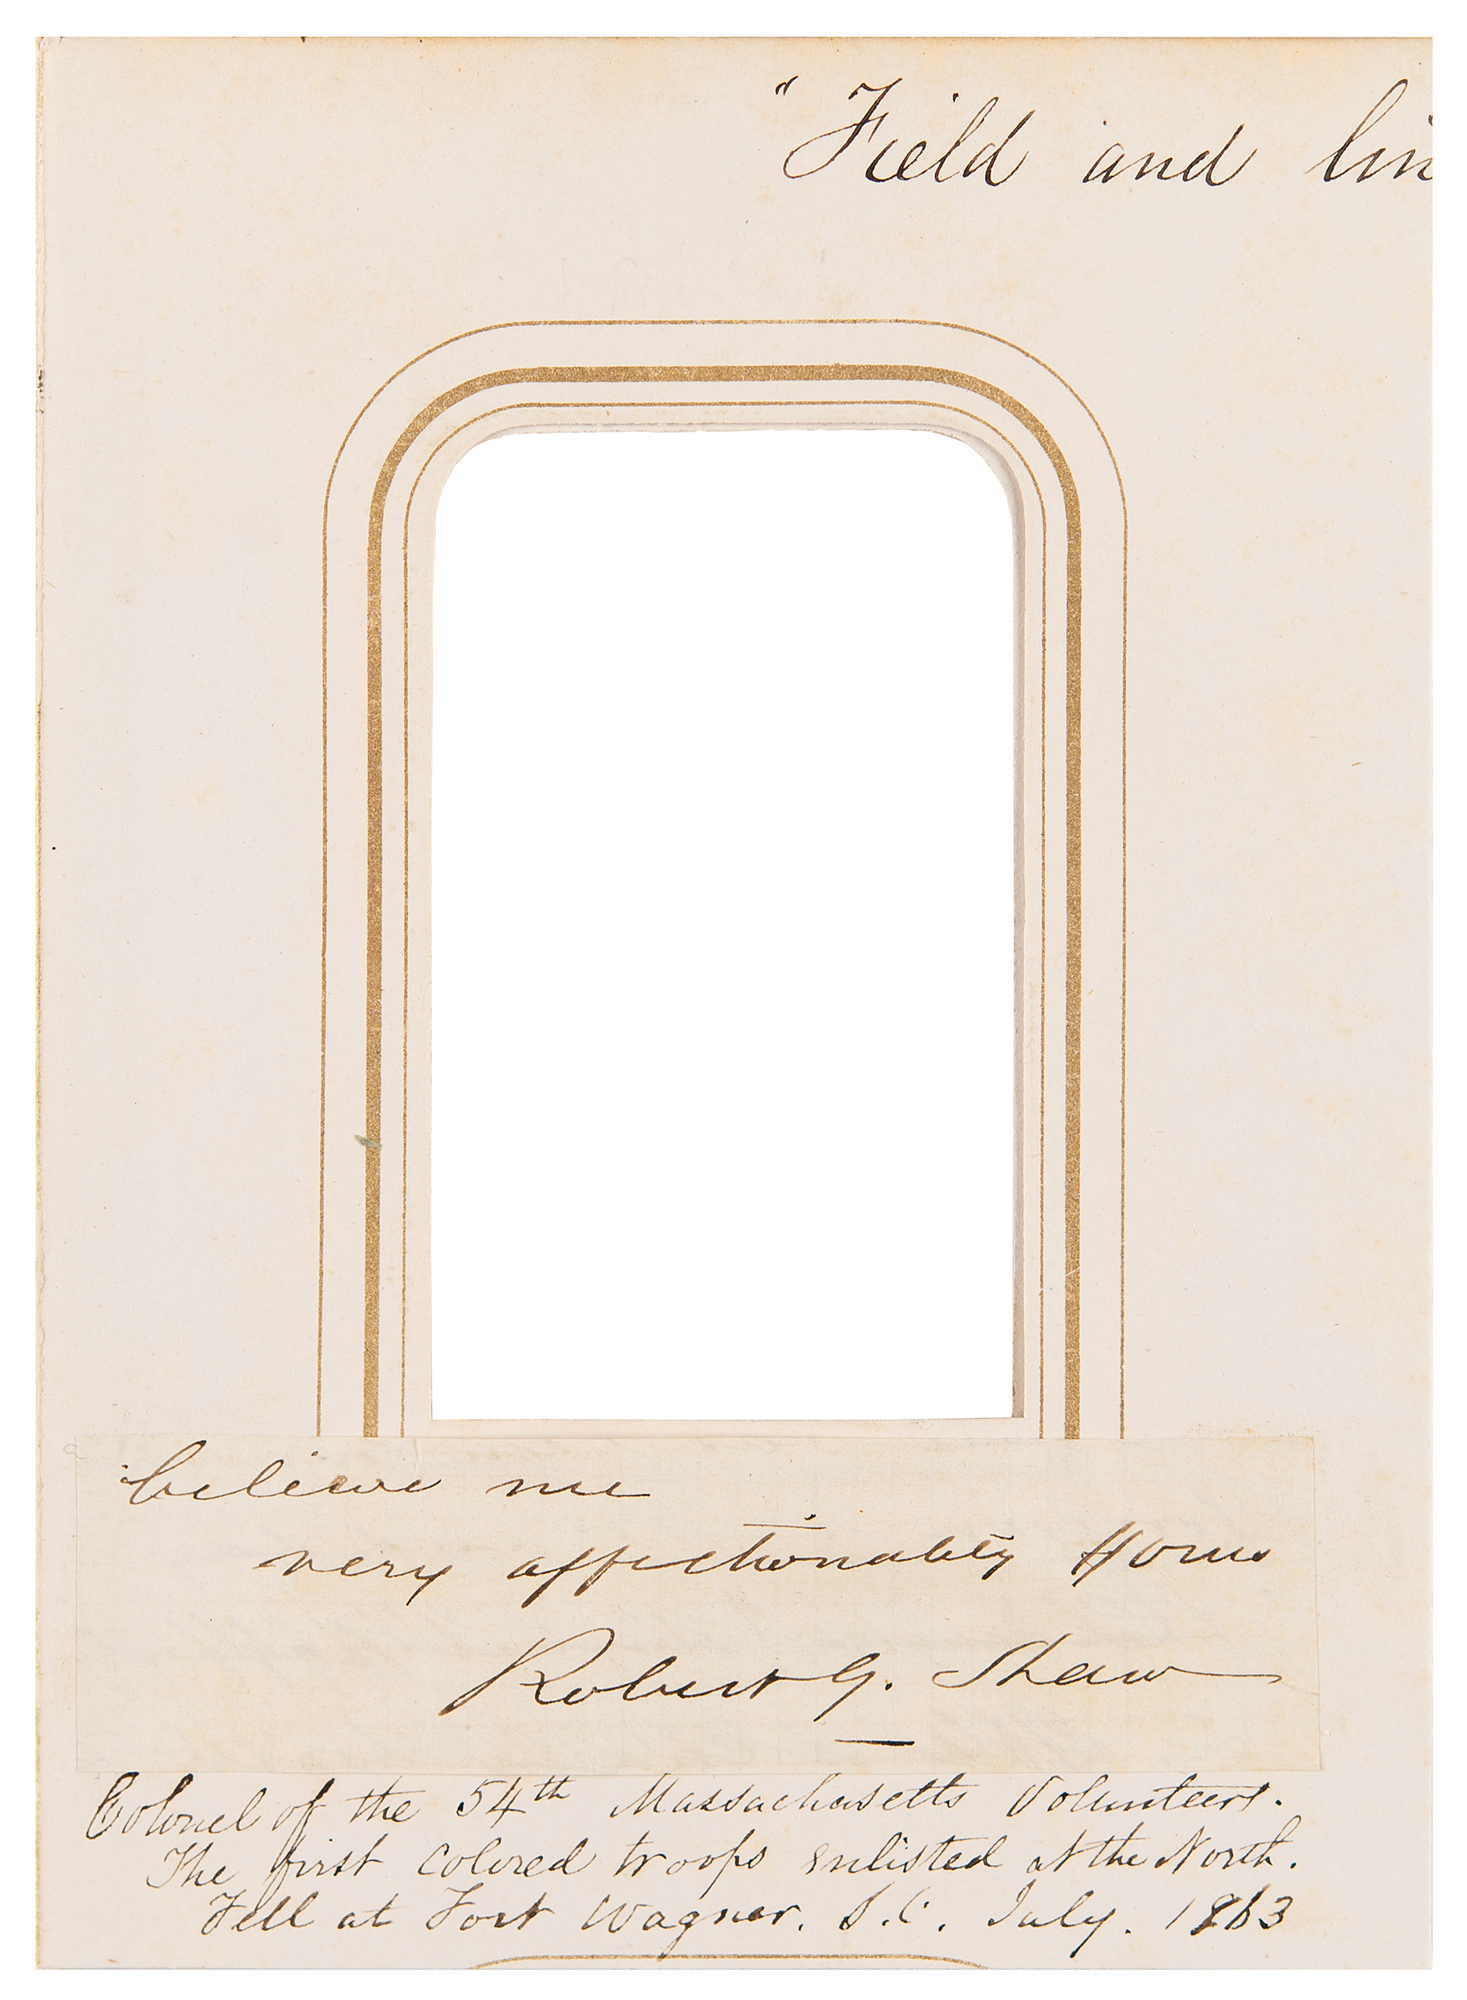 "Field and lin
believe me
very affectionately Yours
Robert G. Shaw
Colonel of the 54th Massachusetts Volunteers.
The first colored troops enlisted at the North.
Fell at Fort Wagner. S.C. July. 1863